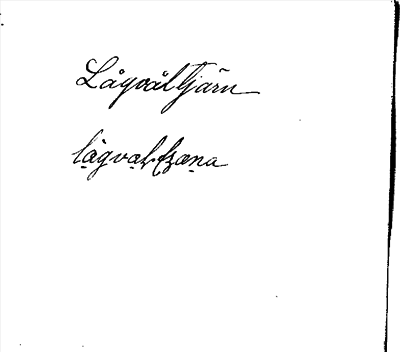 Lågvåltjärn
lågval-tjæna